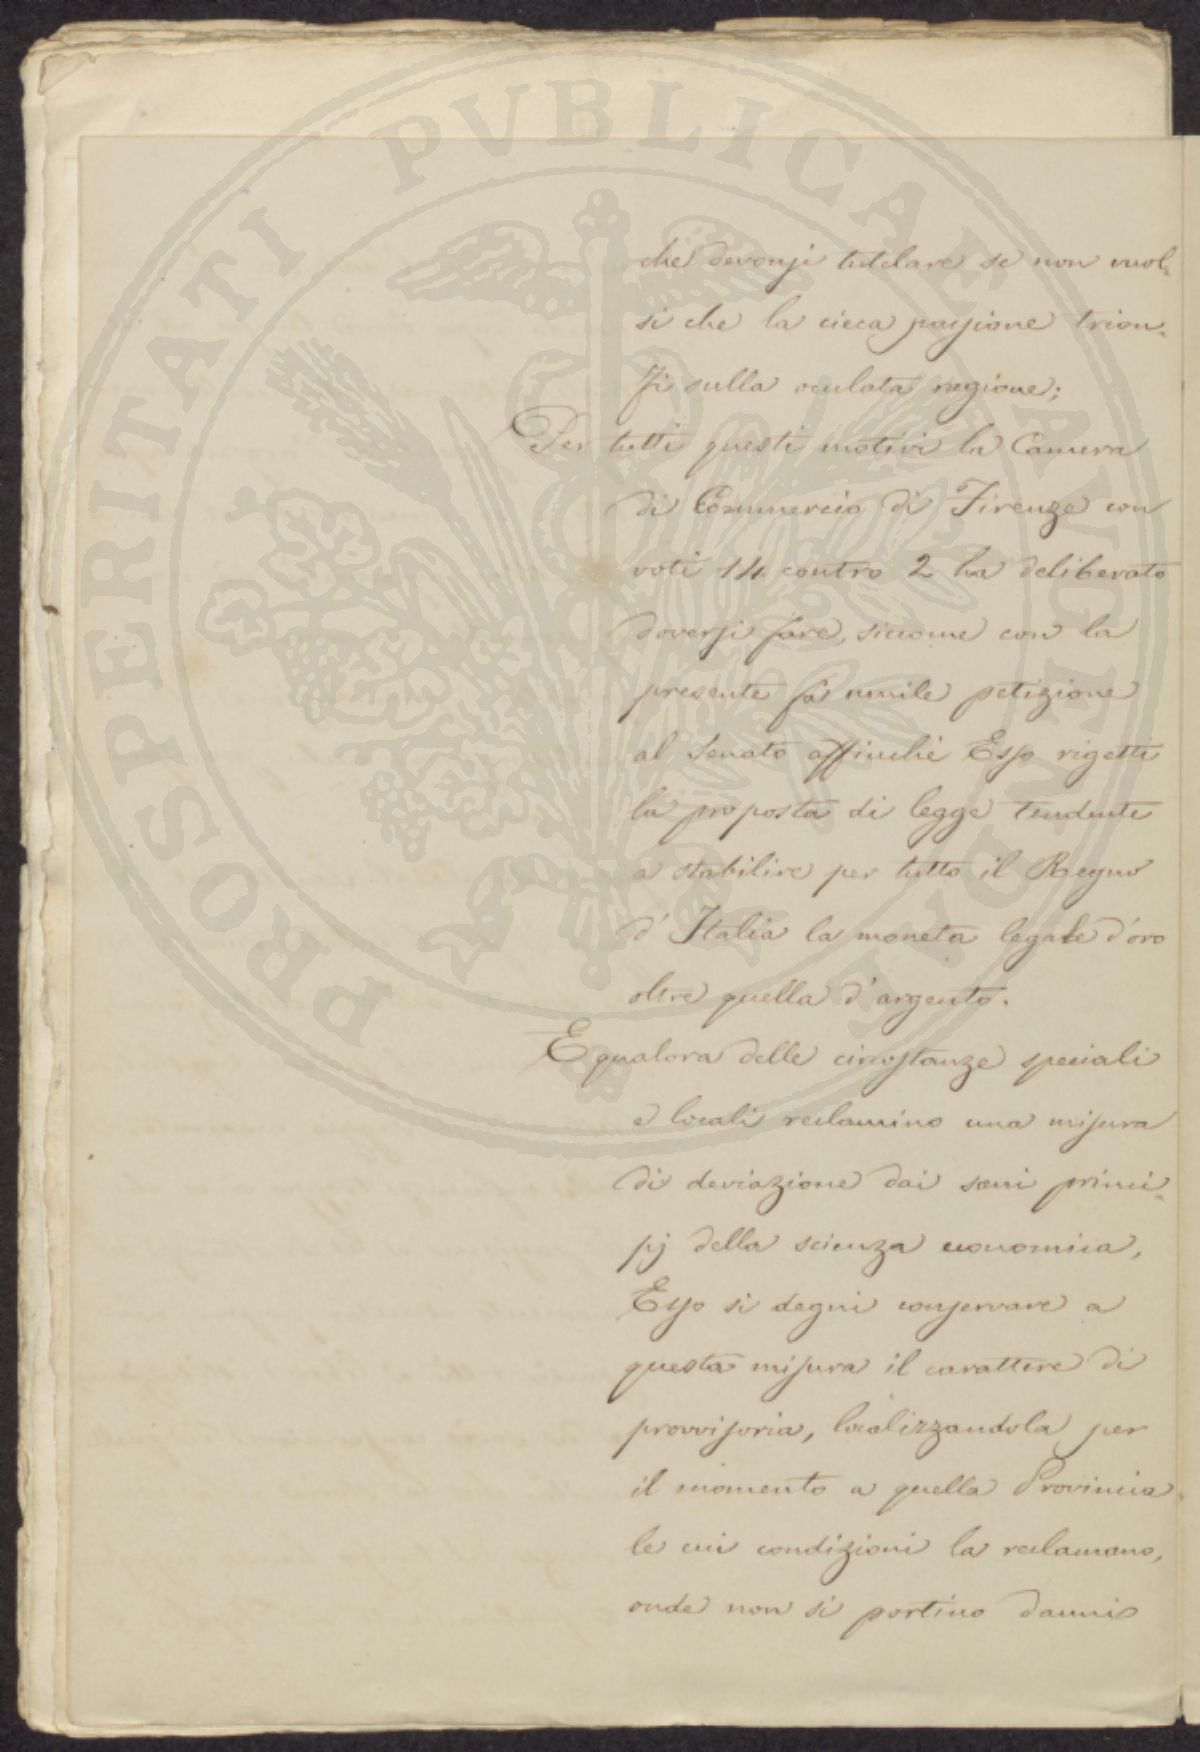 che devonsi tutelare se non vuol-
si che la cieca passione trion-
fi sulla oculata ragione;
Per tutti questi motivi la Camera
di Commercio di Firenze con
voti 14 contro 2 ha deliberato
doversi fare, siccome con la
presente fa umile petizione
al Senato affinchè Esso rigetti
la proposta di legge tendente
a stabilire per tutto il Regno
d'Italia la moneta legale d'oro
oltre quella d'argento.
E qualora delle circostanze speciali
e locali reclamino una misura
di deviazione dai sani princi-
pj della scienza economica,
Esso si degni conservare a
questa misura il carattere di
provvisoria, localizzandola per
il momento a quella Provincia
le cui condizioni la reclamano,
onde non si portino danni
PROSPERITATI PVBLICAE AVGENDAE